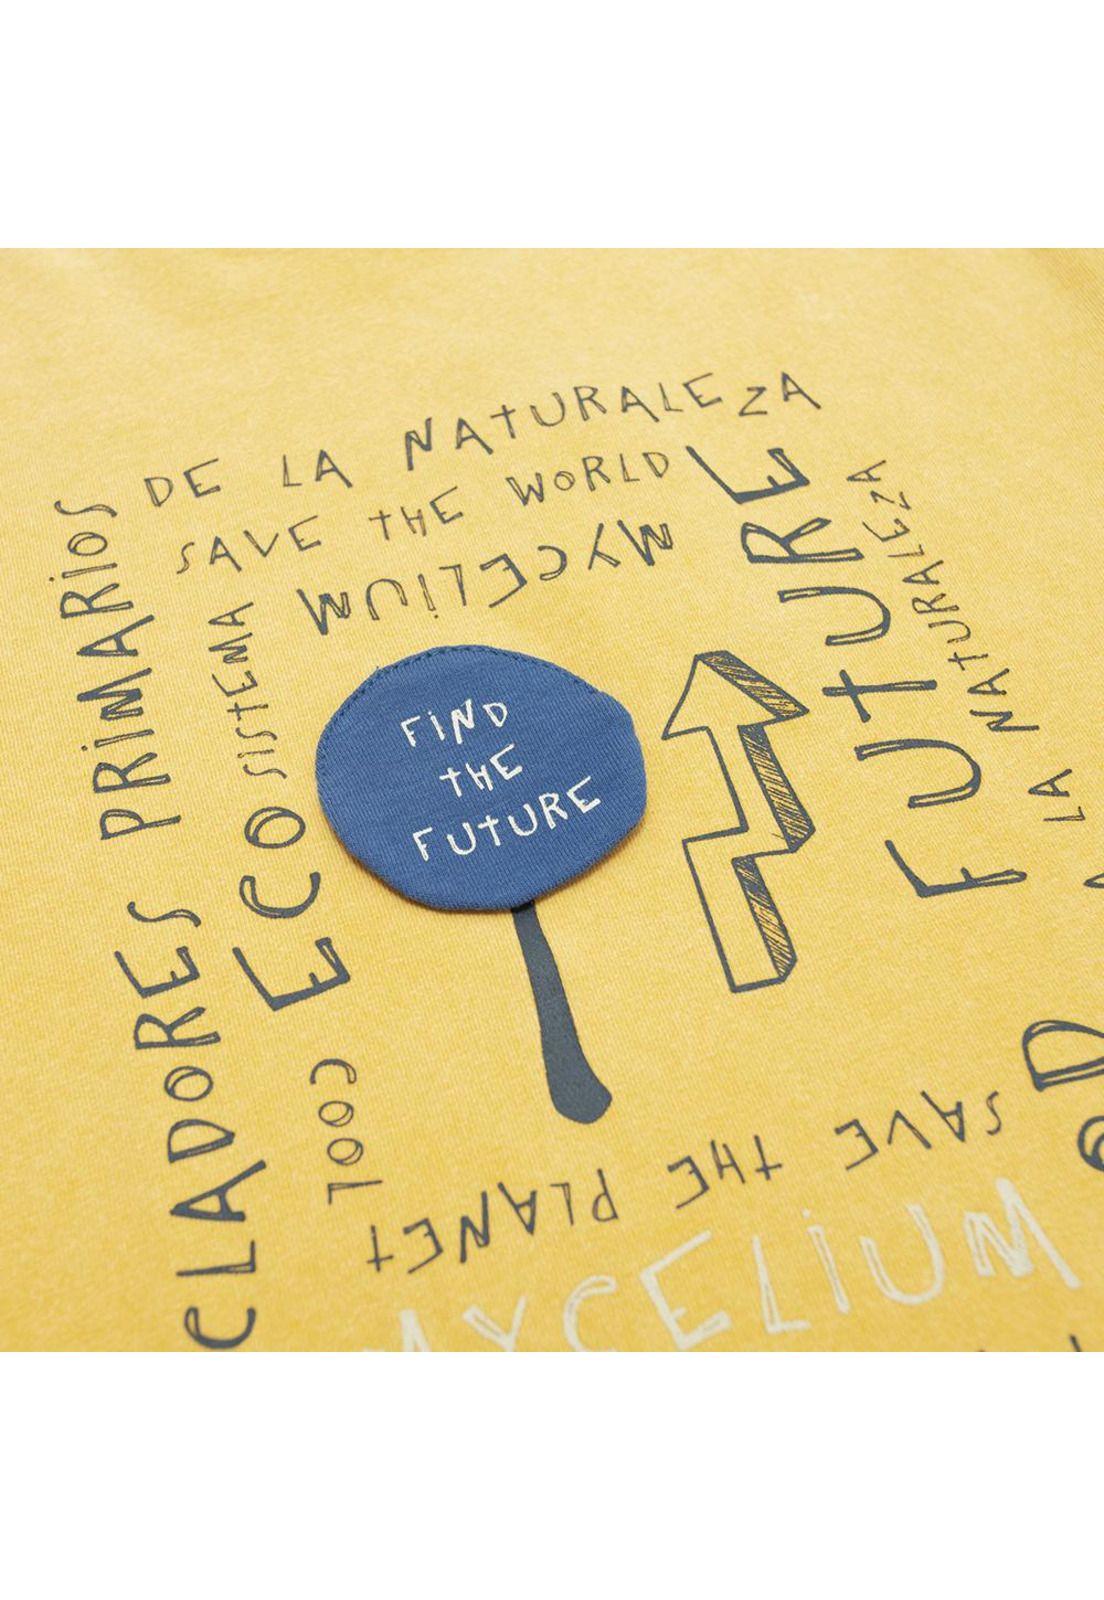 DE LA NATURALEZA
SAVE THE WORLD
MYCELIUM
CLADORES PRIMARIOS
ECOSISTEMA
COOL
FIND
THE
FUTURE
FUTURE
LA NATURALEZA
SAVE THE PLANET
MYCELIUM